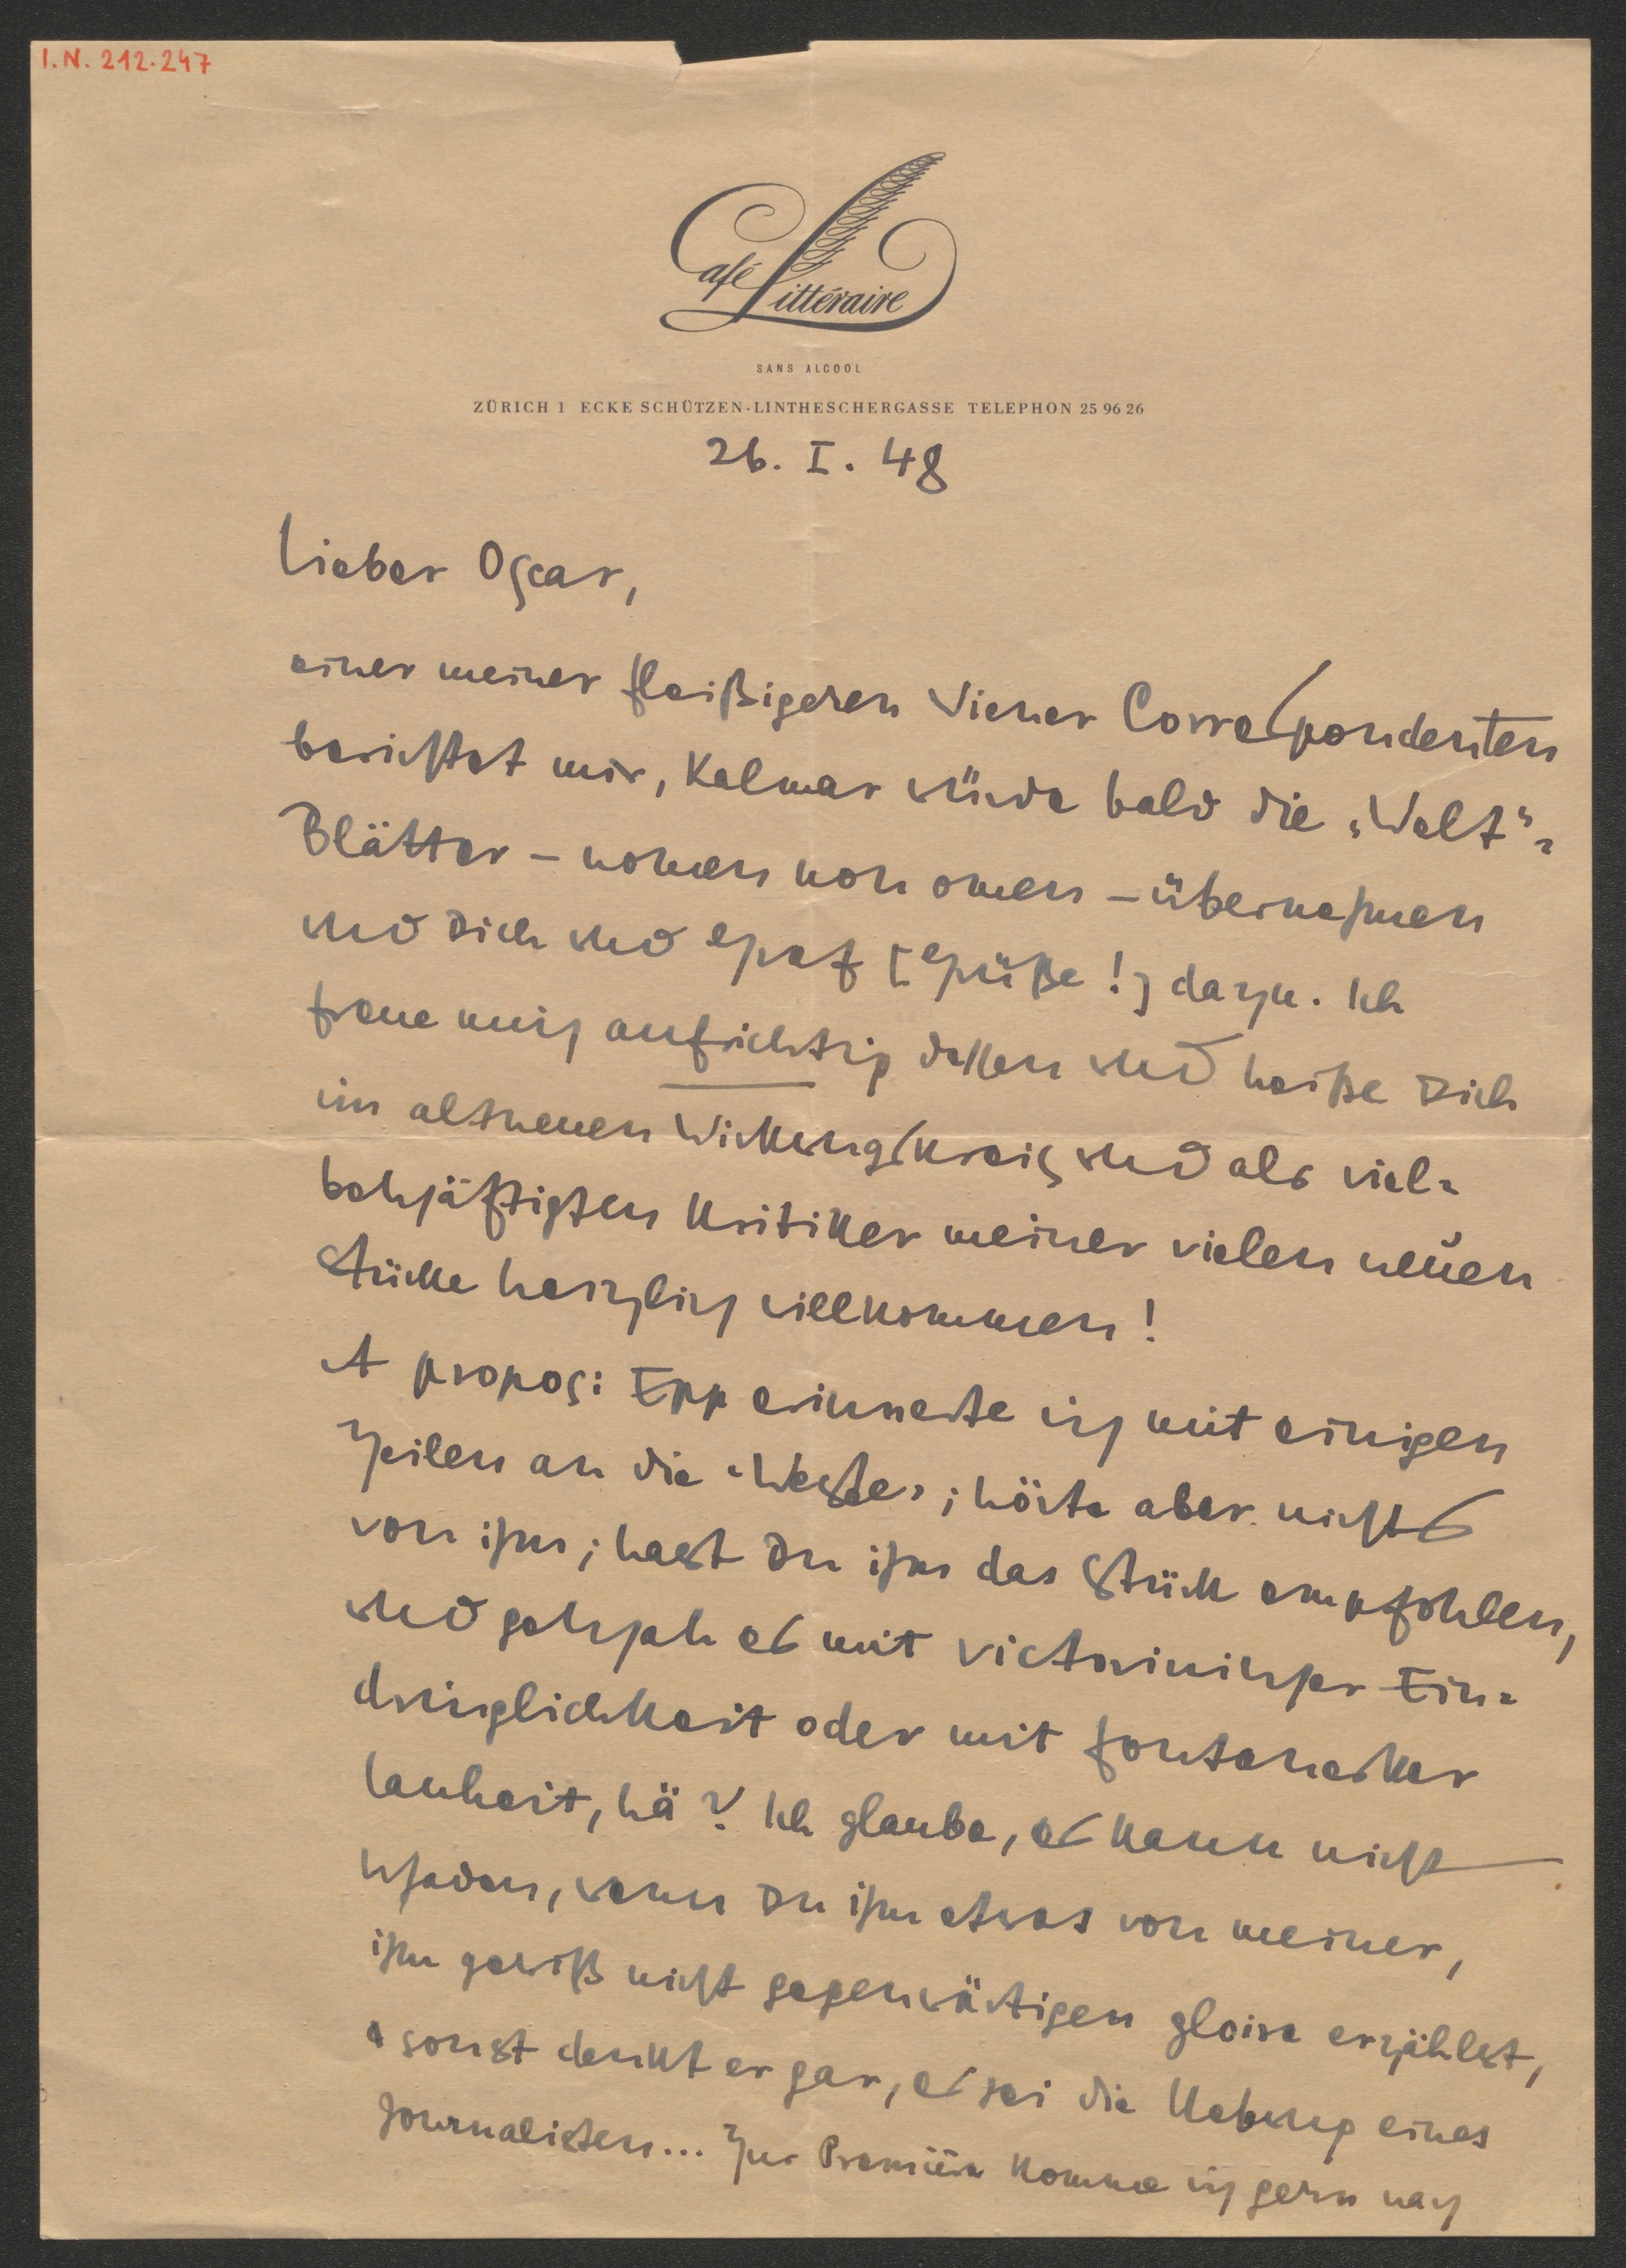 I.N. 212.247
Café Littéraire
SANS ALCOOL
ZÜRICH 1 ECKE SCHÜTZEN-LINTHESCHERGASSE TELEPHON 25 96 26
26. I. 48
Lieber Oscar,
einer meiner fleißigeren Wiener Correspondenten
berichtet mir, Kalmar würde bald die „Welt"-
Blätter – nomen non omen – übernehmen
und Dich und [Grüße!] dazu. Ich
freue mich aufrichtig dessen und heiße Dich
im altneuen Wirkungskreis und als viel-
beschäftigten Kritiker meiner vielen neuen
Stücke herzlich willkommen!
A propos: Epp erinnerte ich mit einigen
Zeilen an die „Weste"; hörte aber nichts
von ihm; hast Du ihm das Stück empfohlen,
und geschah es mit victorinischer Ein-
dringlichkeit oder mit fontanesker
Lauheit, hä? Ich glaube, es kann nicht
schaden, wenn Du ihm etwas von meiner,
ihm gewiß nicht gegenwärtigen gloire erzählst,
sonst denkt er gar, es sei die Uebung eines
Journalisten... Zur Première komme ich gern nach